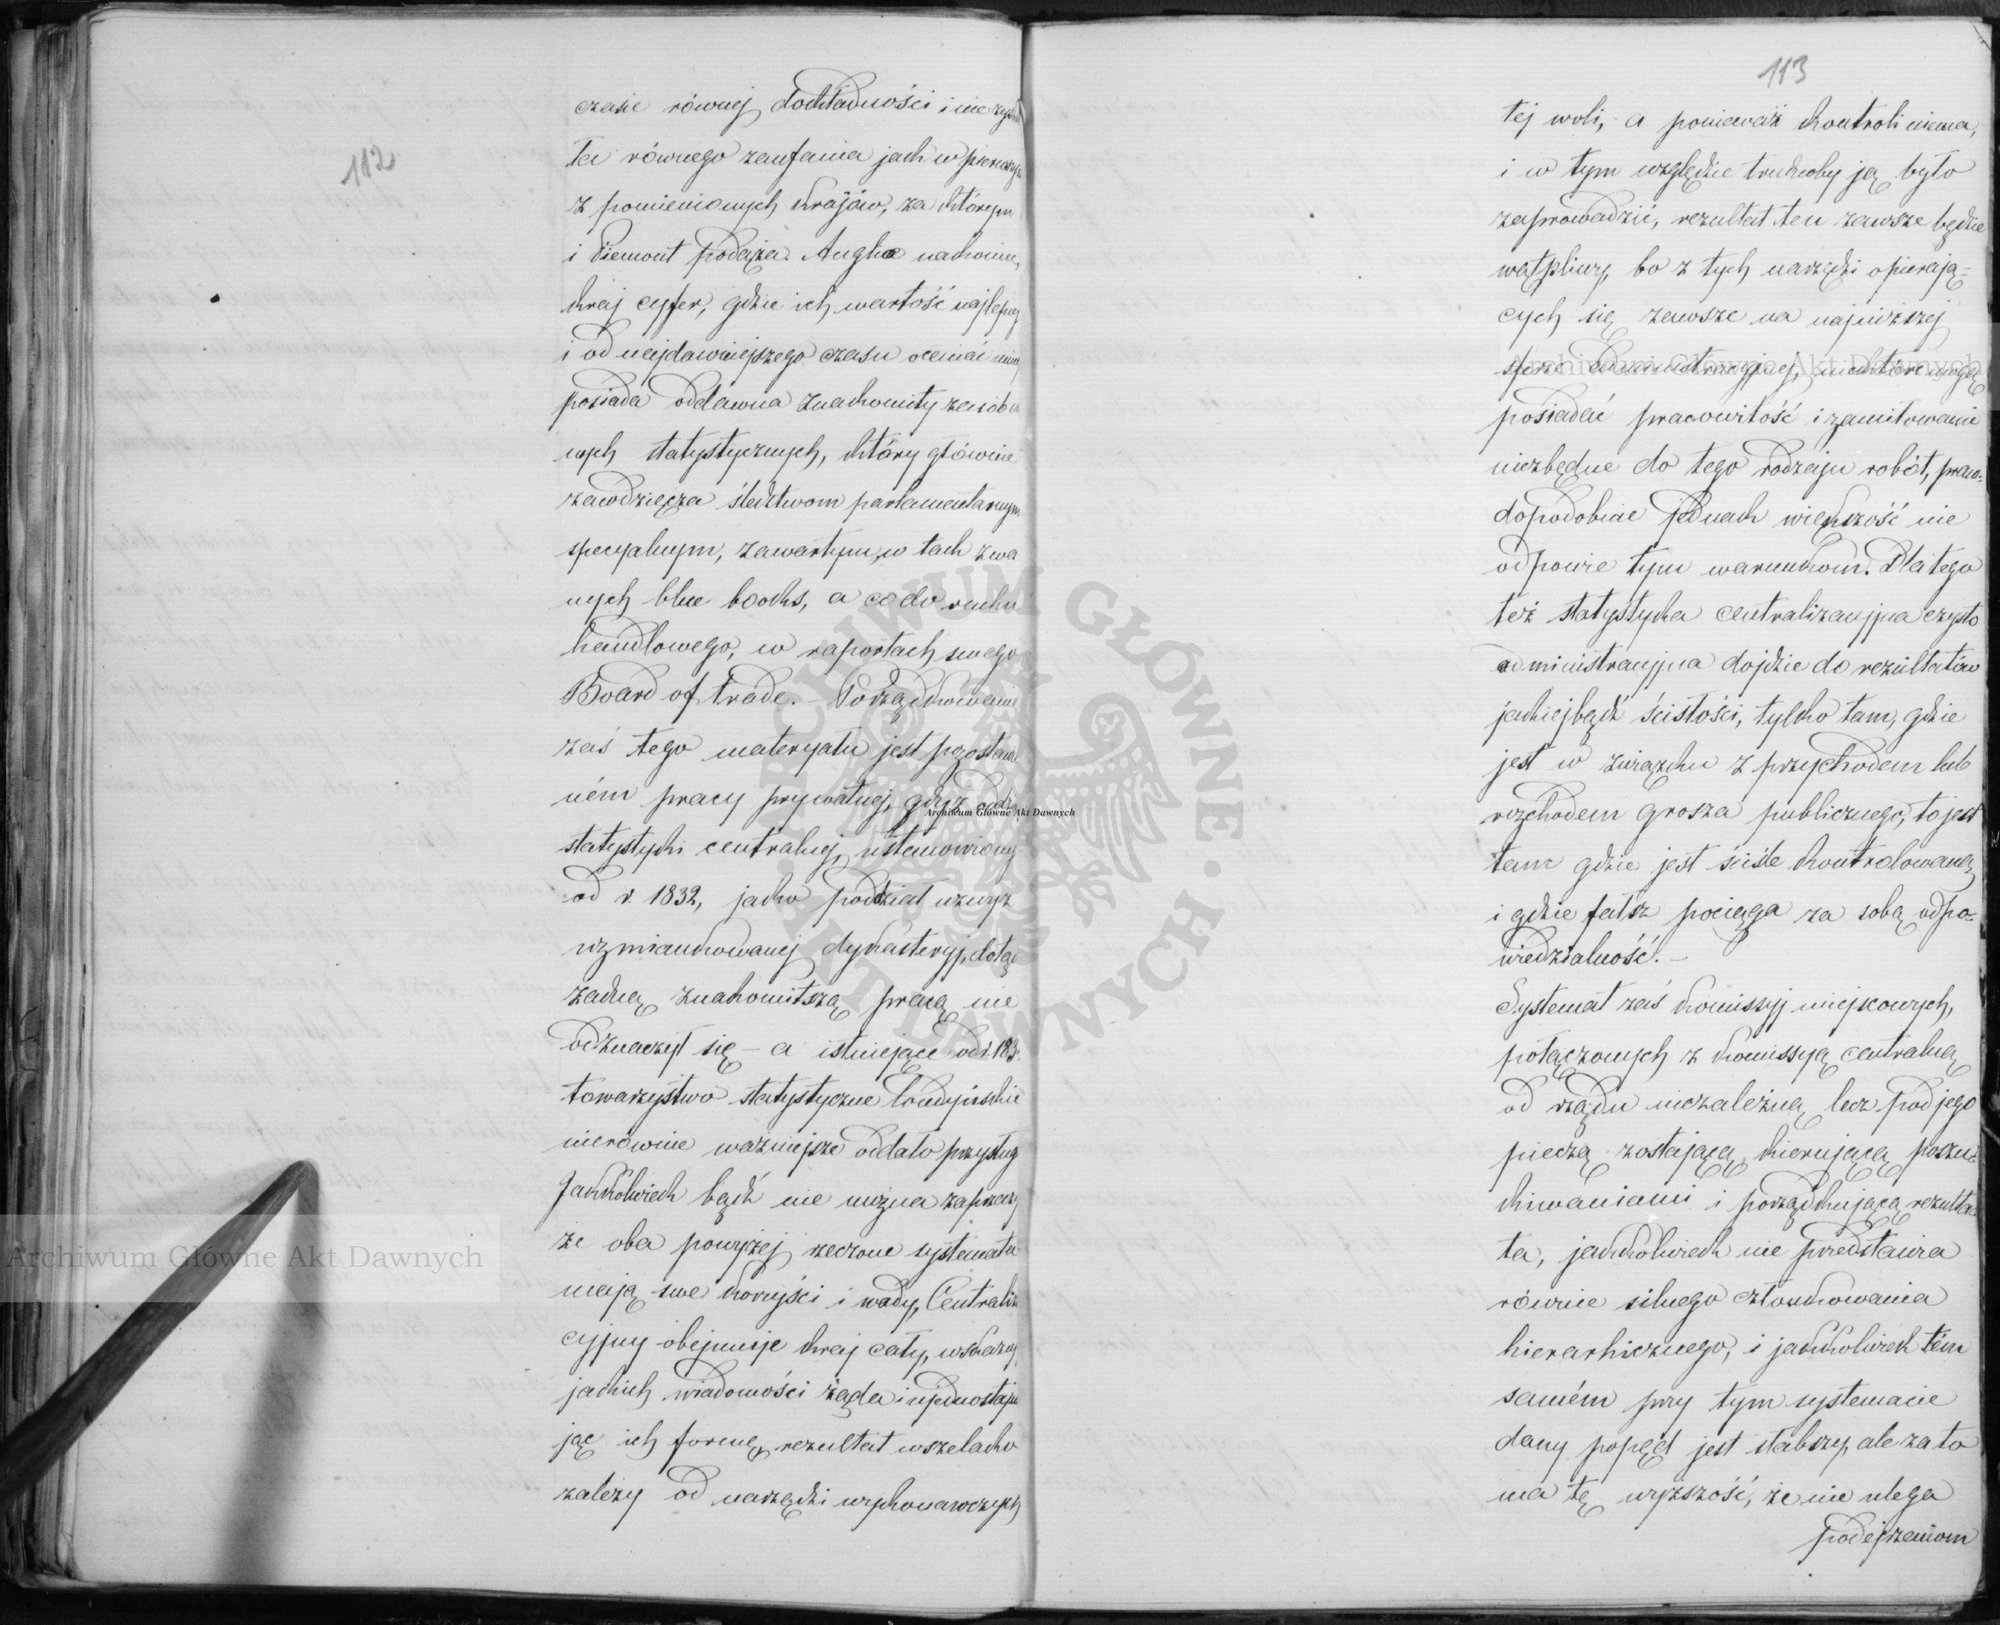 112
czasie równej dokładności i nie
ta równego zaufania jak w pierwszym
z pomienionych krajów, za którym
i Piemont podąża. Anglia nakoniec,
kraj cyfer, gdzie ich wartość najlepiej
i od najdawniejszego czasu oceniać
posiada oddawna znakomity zasób
nych statystycznych, który głównie
zawdzięcza śledztwom parlamentarnym
specyalnym, zawartym w tak zwa
nych blue books, a co do ruchu
handlowego, w raportach swego
Board of trade. – Porządkowanie
zaś tego materyału jest pozostawio
ném pracy prywatnej, gdyż
statystyki centralnej, ustanowiony
od r. 1832, jako podział wzwyż
wzmiankowanej dykasteryj, dotąd
żadną znakomitszą pracą nie
odznaczył się – a istniejące od r. 183
towarzystwo statystyczne Londyńskie
nierównie ważniejsze oddało przysługi
Jakkolwiek bądź nie można zaprzeczyć
że oba powyżej rzeczone systemata
mają swe korzyści i wady, Centraliza
cyjny obejmuje kraj cały, wskazuje
jakich wiadomości żąda i ujednostajnia
jąc ich formę, rezultat wszelako
zależy od narzędzi wykonawczych
113
tej woli, a ponieważ kontroli niema,
i w tym względzie trudnoby ją było
zaprowadzić, rezultat ten zawsze będzie
wątpliwy, bo z tych narzędzi opierają-
cych się zawsze na najniższej
sferze administracyjnej, niektóre mogą
posiadać pracowitość i zamiłowanie
niezbędne do tego rodzaju robót, praw-
dopodobnie jednak większość nie
odpowie tym warunkom. Dla tego
też statystyka centralizacyjna czysto
administracyjna dojdzie do rezultatów
jakiejbądź ścisłości, tylko tam, gdzie
jest w związku z przychodem lub
rozchodem grosza publicznego, to jest
tam gdzie jest ściśle kontrolowaną
i gdzie fałsz pociąga za sobą odpo-
wiedzialność. –
Systemat zaś komissyj miejscowych,
połączonych z komissyą centralną
od rządu niezależną lecz pod jego
pieczą zostającą, kierującą poszu-
kiwaniami i porządkującą rezulta
ta, jakkolwiek nie przedstawia
równie silnego członkowania
hierarhicznego, i jakkolwiek tém
samém przy tym systemacie
dany popęd jest słabszy, ale za to
ma tę wyższość, że nie ulega
podejrzeniom
Archiwum Główne Akt Dawnych
Archiwum Główne Akt Dawnych
Archiwum Główne Akt Dawnych
ARCHIWUM GŁÓWNE · AKT DAWNYCH